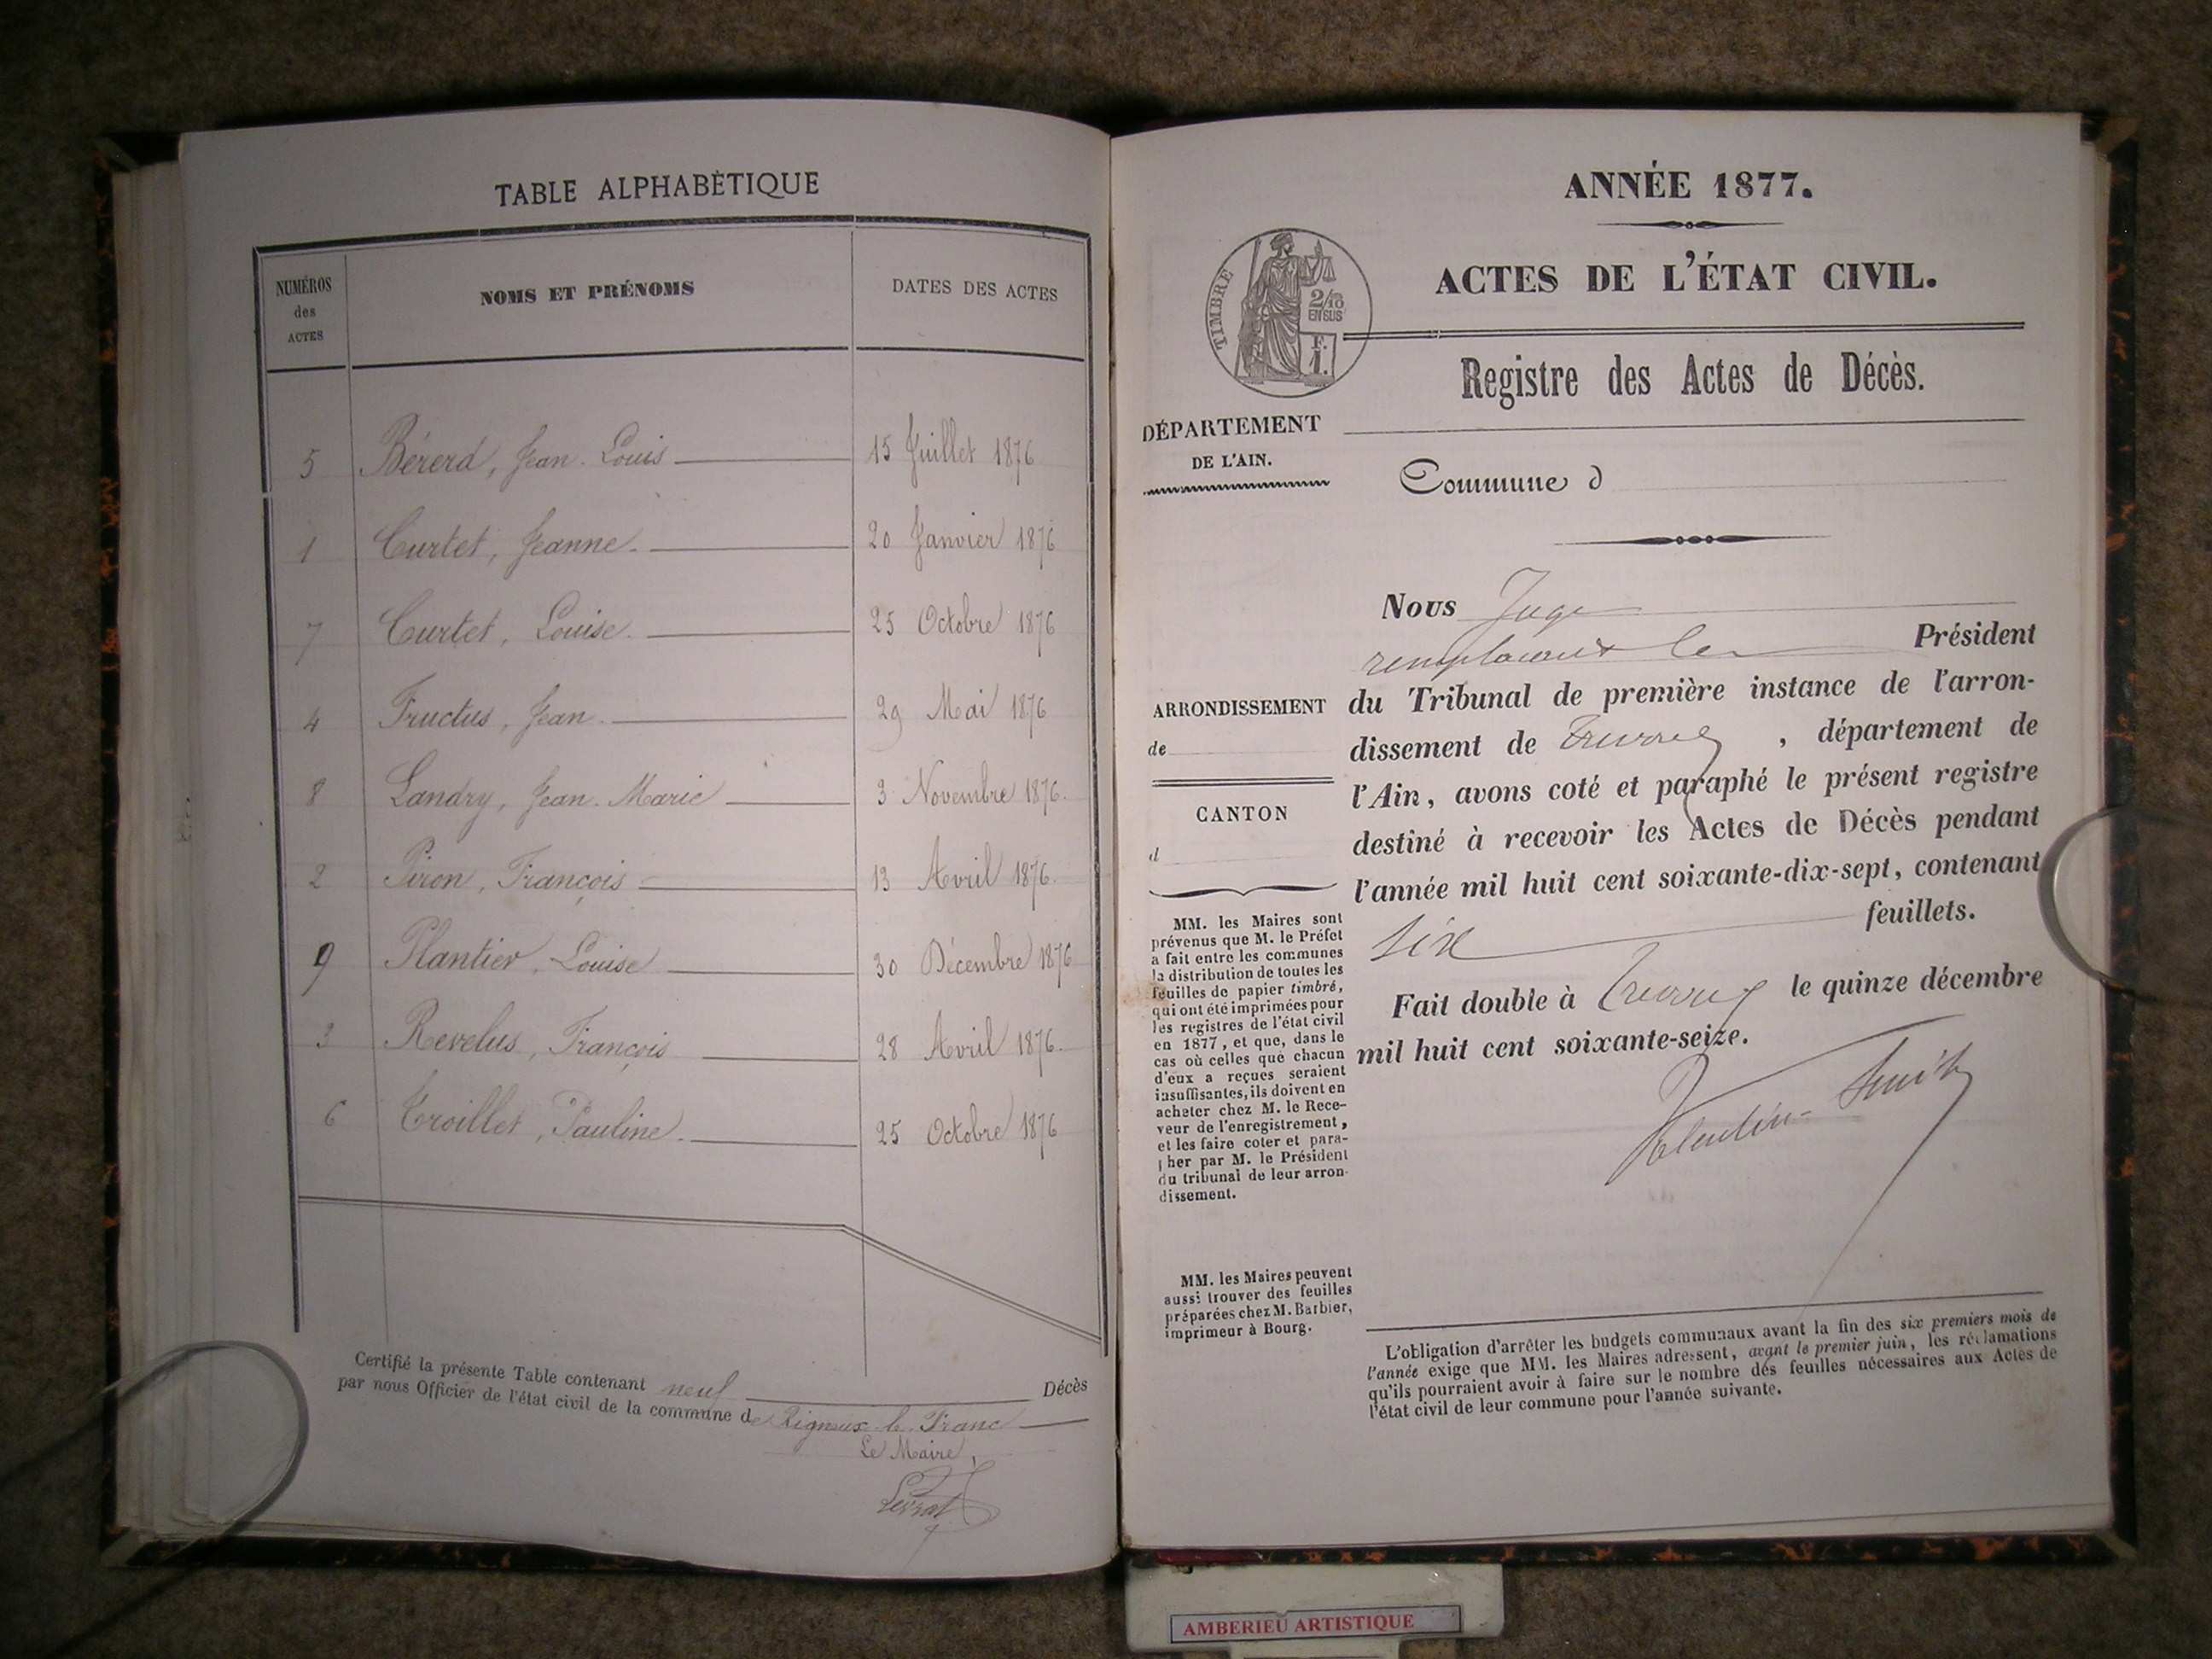 TABLE ALPHABÉTIQUE
NUMÉROS des ACTES NOMS ET PRÉNOMS DATES DES ACTES
5 Bérerd, Jean-Louis 15 Juillet 1876
1 Curtet, Jeanne 20 Janvier 1876
7 Curtet, Louise 25 Octobre 1876
4 Fructus, Jean 29 Mai 1876
8 Landry, Jean-Marie 3 Novembre 1876
2 Piron, François 13 Avril 1876
9 Plantier, Louise 30 Décembre 1876
3 Revelus, François 28 Avril 1876
6 Troillet, Pauline 25 Octobre 1876
Certifié la présente Table contenant neuf Décès
par nous Officier de l'état civil de la commune de Rigneux-le-Franc
Le Maire,
Levrat
ANNÉE 1877.
ACTES DE L'ÉTAT CIVIL.
TIMBRE
2/10
EN SUS
F.
1.
Registre des Actes de Décès.
DÉPARTEMENT
DE L'AIN.
Commune d
ARRONDISSEMENT
de
CANTON
d
MM. les Maires sont
prévenus que M. le Préfet
a fait entre les communes
la distribution de toutes les
feuilles de papier timbré,
qui ont été imprimées pour
les registres de l'état civil
en 1877, et que, dans le
cas où celles que chacun
d'eux a reçues seraient
insuffisantes, ils doivent en
acheter chez M. le Rece-
veur de l'enregistrement,
et les faire coter et para-
pher par M. le Président
du tribunal de leur arron-
dissement.
MM. les Maires peuvent
aussi trouver des feuilles
préparées chez M. Barbier,
imprimeur à Bourg.
Nous Juge
remplaçant le Président
du Tribunal de première instance de l'arron-
dissement de Trevoux, département de
l'Ain, avons coté et paraphé le présent registre
destiné à recevoir les Actes de Décès pendant
l'année mil huit cent soixante-dix-sept, contenant
six feuillets.
Fait double à Trevoux le quinze décembre
mil huit cent soixante-seize.
Valentin-Smith
L'obligation d'arrêter les budgets communaux avant la fin des six premiers mois de
l'année exige que MM. les Maires adressent, avant le premier juin, les réclamations
qu'ils pourraient avoir à faire sur le nombre des feuilles nécessaires aux Actes de
l'état civil de leur commune pour l'année suivante.
AMBERIEU ARTISTIQUE